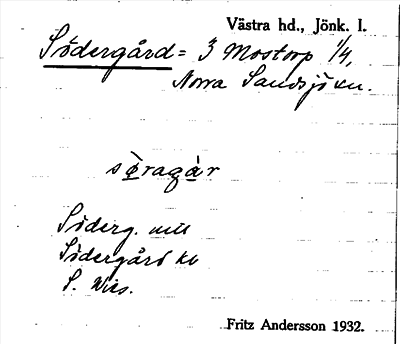 Västra hd., Jönk. l.
Södergård = 3 Mostorp 1/4,
Norra Sandsjö sn.
sø̀ragár
Söderg. 
Södergård kv
S. 
Fritz Andersson 1932.